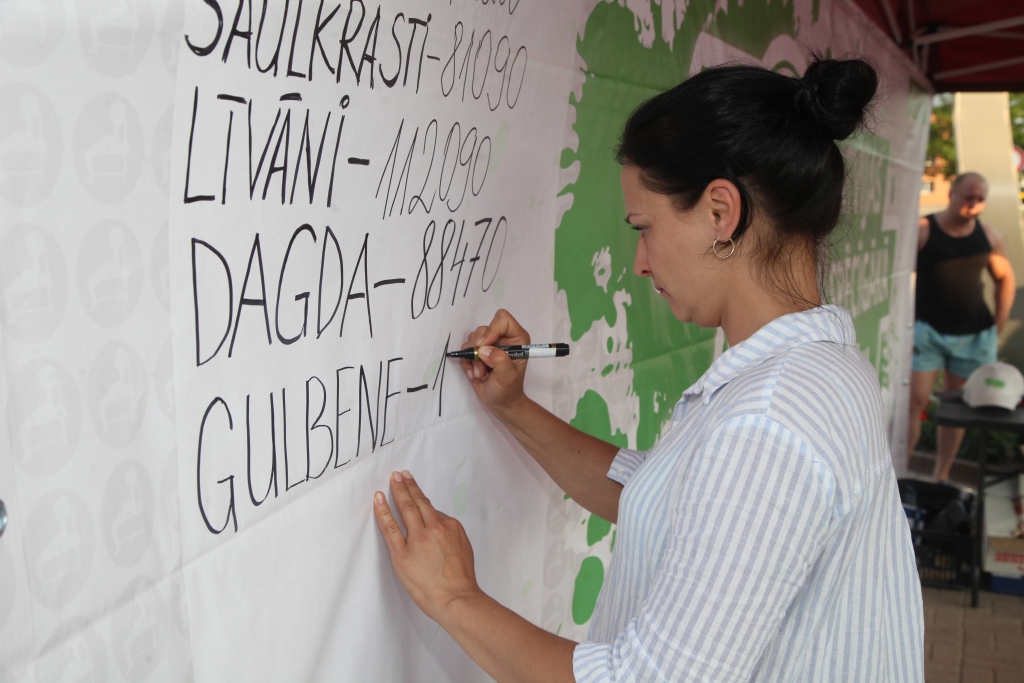 SAULKRASTI-81090
LĪVĀNI-112090
DAGDA-88470
GULBENE-1